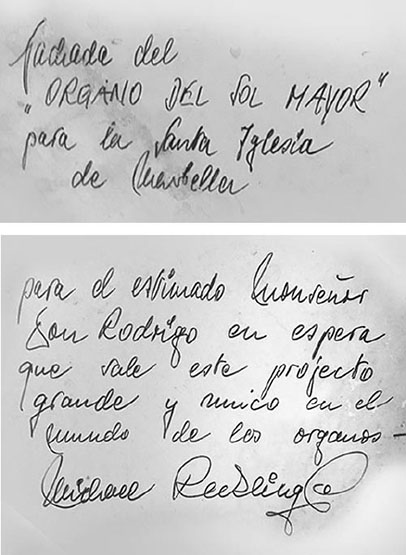 fachada del
"ORGANO DEL SOL MAYOR"
para la Santa Iglesia
de Marbella
para el estimado Monseñor
Don Rodrigo en espera
que sale este projecto
grande y unico en el
mundo de los organos -
Michael Reckling